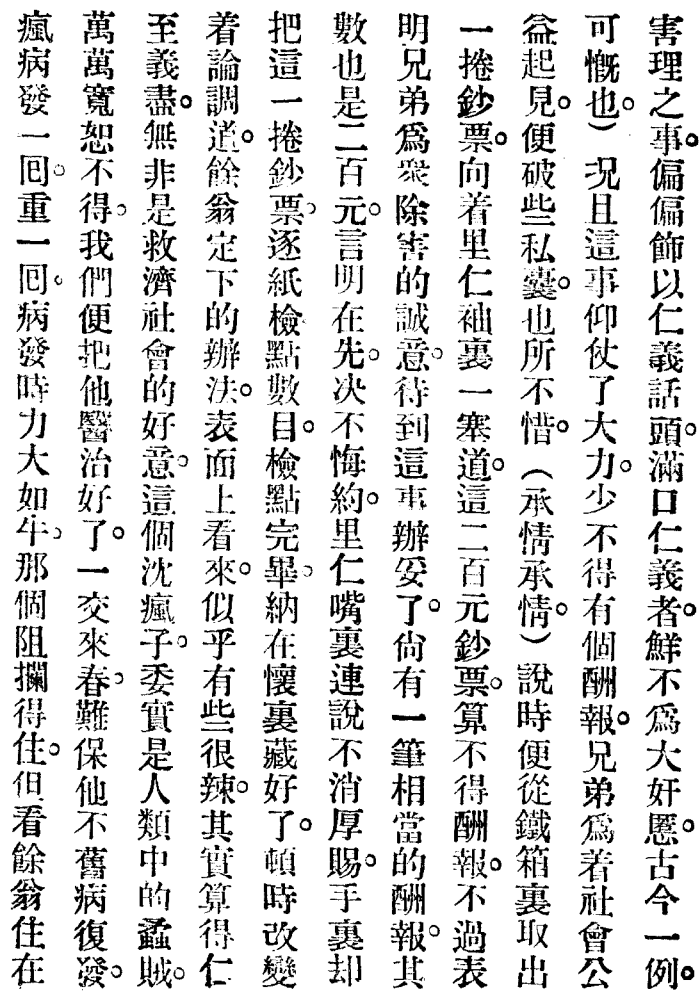 害理之事。偏偏飾以仁義話頭。滿口仁義者。鮮不爲大奸慝。古今一例。
可慨也。）況且這事仰仗了大力。少不得有個酬報。兄弟爲着社會公
益起見。便破些私囊。也所不惜。（承情承情。）說時便從鐵箱裏取出
一捲鈔票。向着里仁袖裏一塞道。這二百元鈔票。算不得酬報。不過表
明兄弟爲衆除害的誠意。待到這事辦妥了。尙有一筆相當的酬報。其
數也是二百元。言明在先。决不悔約。里仁嘴裏連說不消厚賜。手裏却
把這一捲鈔票。逐紙檢點數目。檢點完畢。納在懷裏藏好了。頓時改變
着論調道。餘翁定下的辦法。表面上看來。似乎有些很辣。其實算得仁
至義盡。無非是救濟社會的好意。這個沈瘋子。委實是人類中的蟊賊。
萬萬寬恕不得。我們便把他醫治好了。一交來春。難保他不舊病復發。
瘋病發一回。重一回。病發時力大如牛。那個阻攔得住。但看餘翁住在